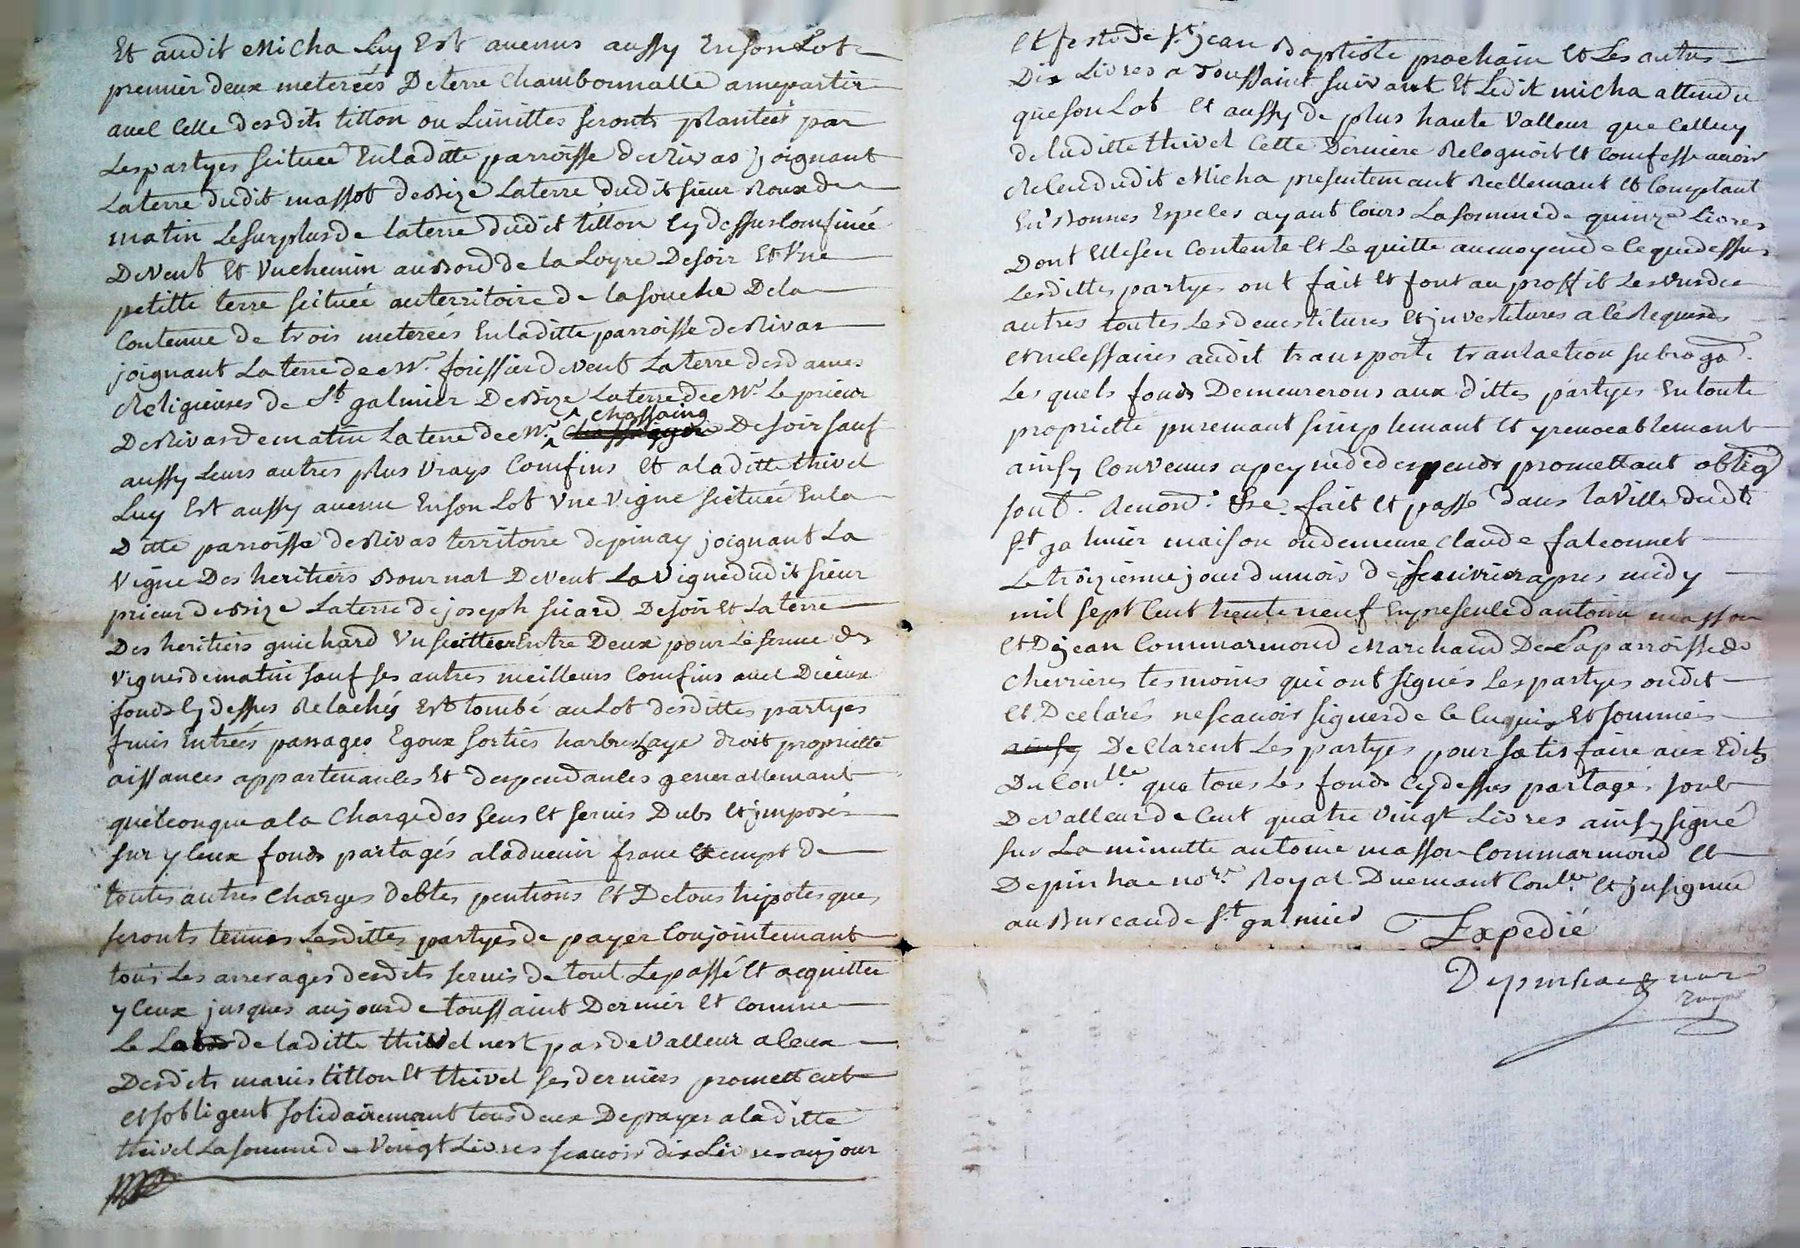 Et audit Micha Luy Est auenus aussy En son Lot
premier deux meterées De terre Chambonnalle a mepartir
auec Celle desdits tillon ou Limittes seronts plantées par
Les partyes scituée En laditte parroisse de Rivas joignant
La terre dudit massot de Bize La terre dudit sieur Roux de
matin Le surplus de la terre dudit tillon Cy dessus Comfinée
De vent Et Vn chemin au Bord de la Loyre De soir Et Vne
petitte terre scituée au territoire de la souche De la
Contenue de trois meterées En laditte parroisse de Rivas
joignant La terre de Mr. foissier de vent La terre des dames
Religieuses de St galmier De Bize La terre de Mr. Le prieur
De Rivas de matin La terre de Mr. chassaing De soir sauf
aussy Leurs autres plus vrays Comfins Et a laditte thivel
Luy Est aussy auenu En son Lot Vne Vigne scituée En la
Ditte parroisse de Rivas territoire de pinay joignant La
Vigne Des heritiers Bournat De vent La Vigne dudit sieur
prieur de Bize La terre de joseph sicard De soir Et La terre
Des heritiers guichard Vn Entre Deux pour Le serue des
Vignes de matin sauf ses autres meilleurs Comfins auec Dicieux
fonds Cy dessus Relachés Est tombé au Lot desdittes partyes
fruis Entrées passages Egoux sorties harbres haye droit proprietté
aissances appartenances Et despendances generallemant
quelconque a la Charge des sens Et servis Dubs Et jmposés
sur yceux fonds partagés a laduenir franc Exempt de
toutes autres Charges debtes pentions Et De tous hipoteques
seronts tenues Lesdittes partyes de payer Conjointemant
tous Les arrerages desdits servis de tout Le passé Et acquitter
yceux jusques au jour de toussaint Dernier Et Comme
Le de laditte thivel nest pas de Valleur a Ceux
Desdits maries tillon Et thivel ses derniers promettent
Et sobligent solidairemant tous deux De payer a laditte
thivel La somme de Vingt Livres scauoir dix Livres au jour
Et feste de St jean Baptiste prochain Et Les autres
Dix Livres a toussaint suivant Et Ledit micha attendu
que son Lot Et aussy de plus haute Valleur que Celluy
de laditte thivel Cette Derniere Recognoit Et Comfesse auoir
Receu dudit Micha presentemant Reellemant Et Comptant
En Bonnes Especes ayant Cours La somme de quinze Livres
Dont Elle sen Contente Et Le quitte au moyen de Ce que dessus
Lesdittes partyes ont fait Et font au proffit Les Vns des
autres toutes Les deuestitures Et jnvestitures a Ce Requises
Et necessaires audit transport transaction subroga.
Les quels fonds Demeurerons aux dittes partyes En toute
proprietté puremant simplemant Et yrevocablemant
ainsy Convenus a peyne de despends promettant oblig
soub. Renon. fait Et passé dans la Ville dudt
St galmier maison ou demeure Claude falconnet
Le troizieme jour du mois de apres midy
mil sept Cent trente neuf En presence dantoine masson
Et Djean Commarmond Marchand De La parroisse de
Chevrieres tesmoins qui ont signés Les partyes ondit
Et Declarés ne scauoir signer de Ce Enquis Et sommés
Declarent Les partyes pour satisfaire aux Edits
Du Conlle que tous Les fonds Cy dessus partagés sont
De Valleur de Cent quatre Vingt Livres ainsy signé
sur La minutte antoine masson Commarmond Et
Depinhac nore. Royal Duemant Conlle Et jnsignué
au Bureau de St galmier Expedié
Depinhac nore
royal